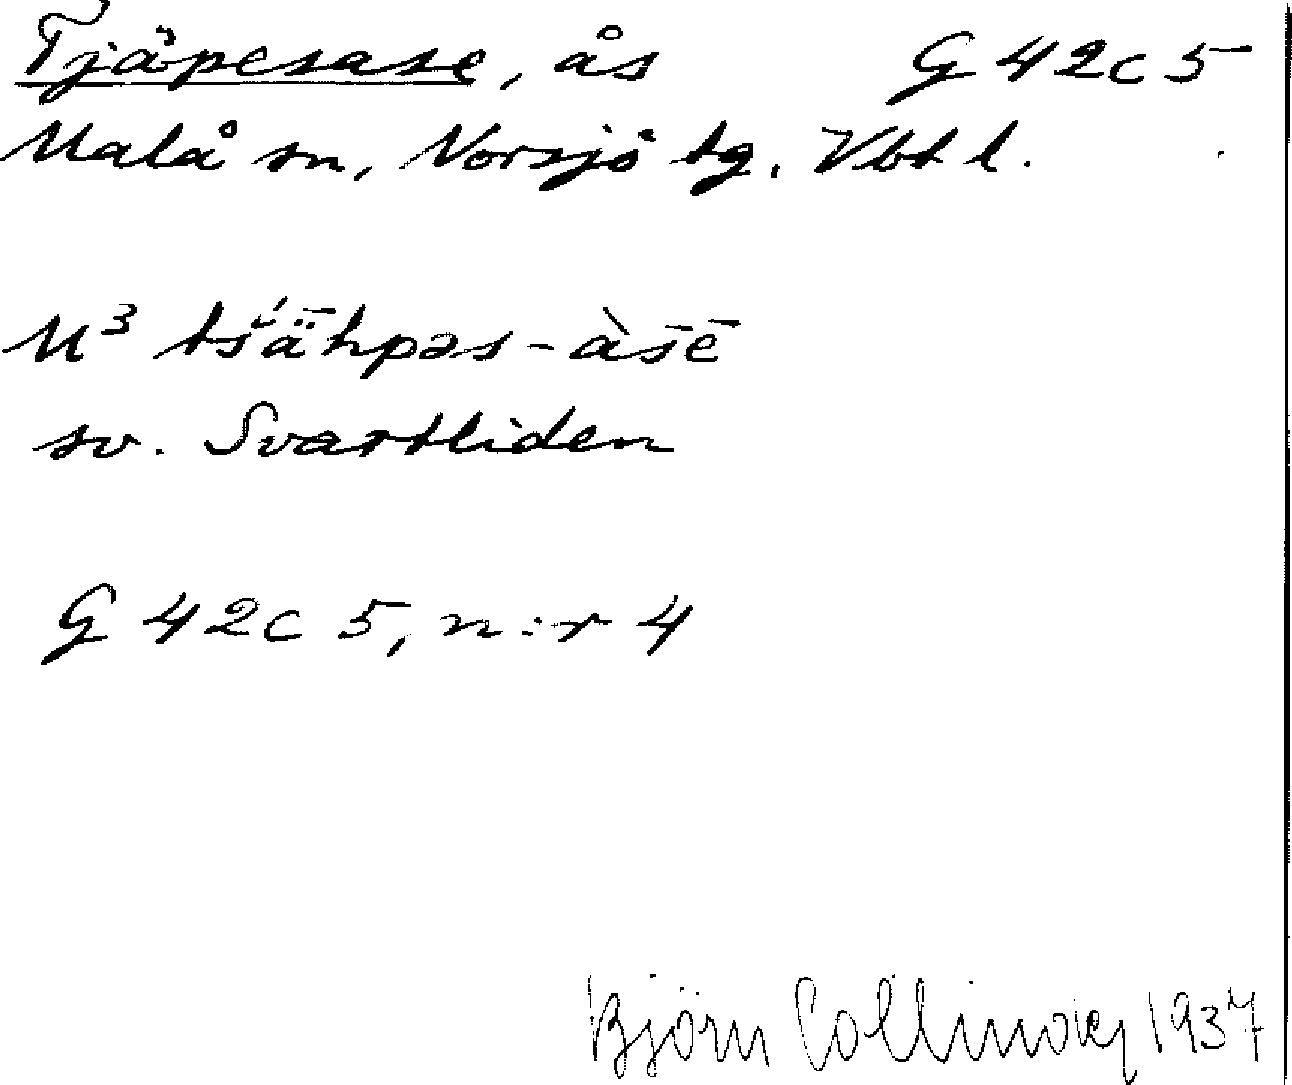 Tjäpesase, ås G 42c 5
Malå sn, Norsjö tg. Vbtl.
M³ tśǟhpəs-às̄ē
sv. Svartliden
G 42c 5, n:r 4
Björn Collinder 1937